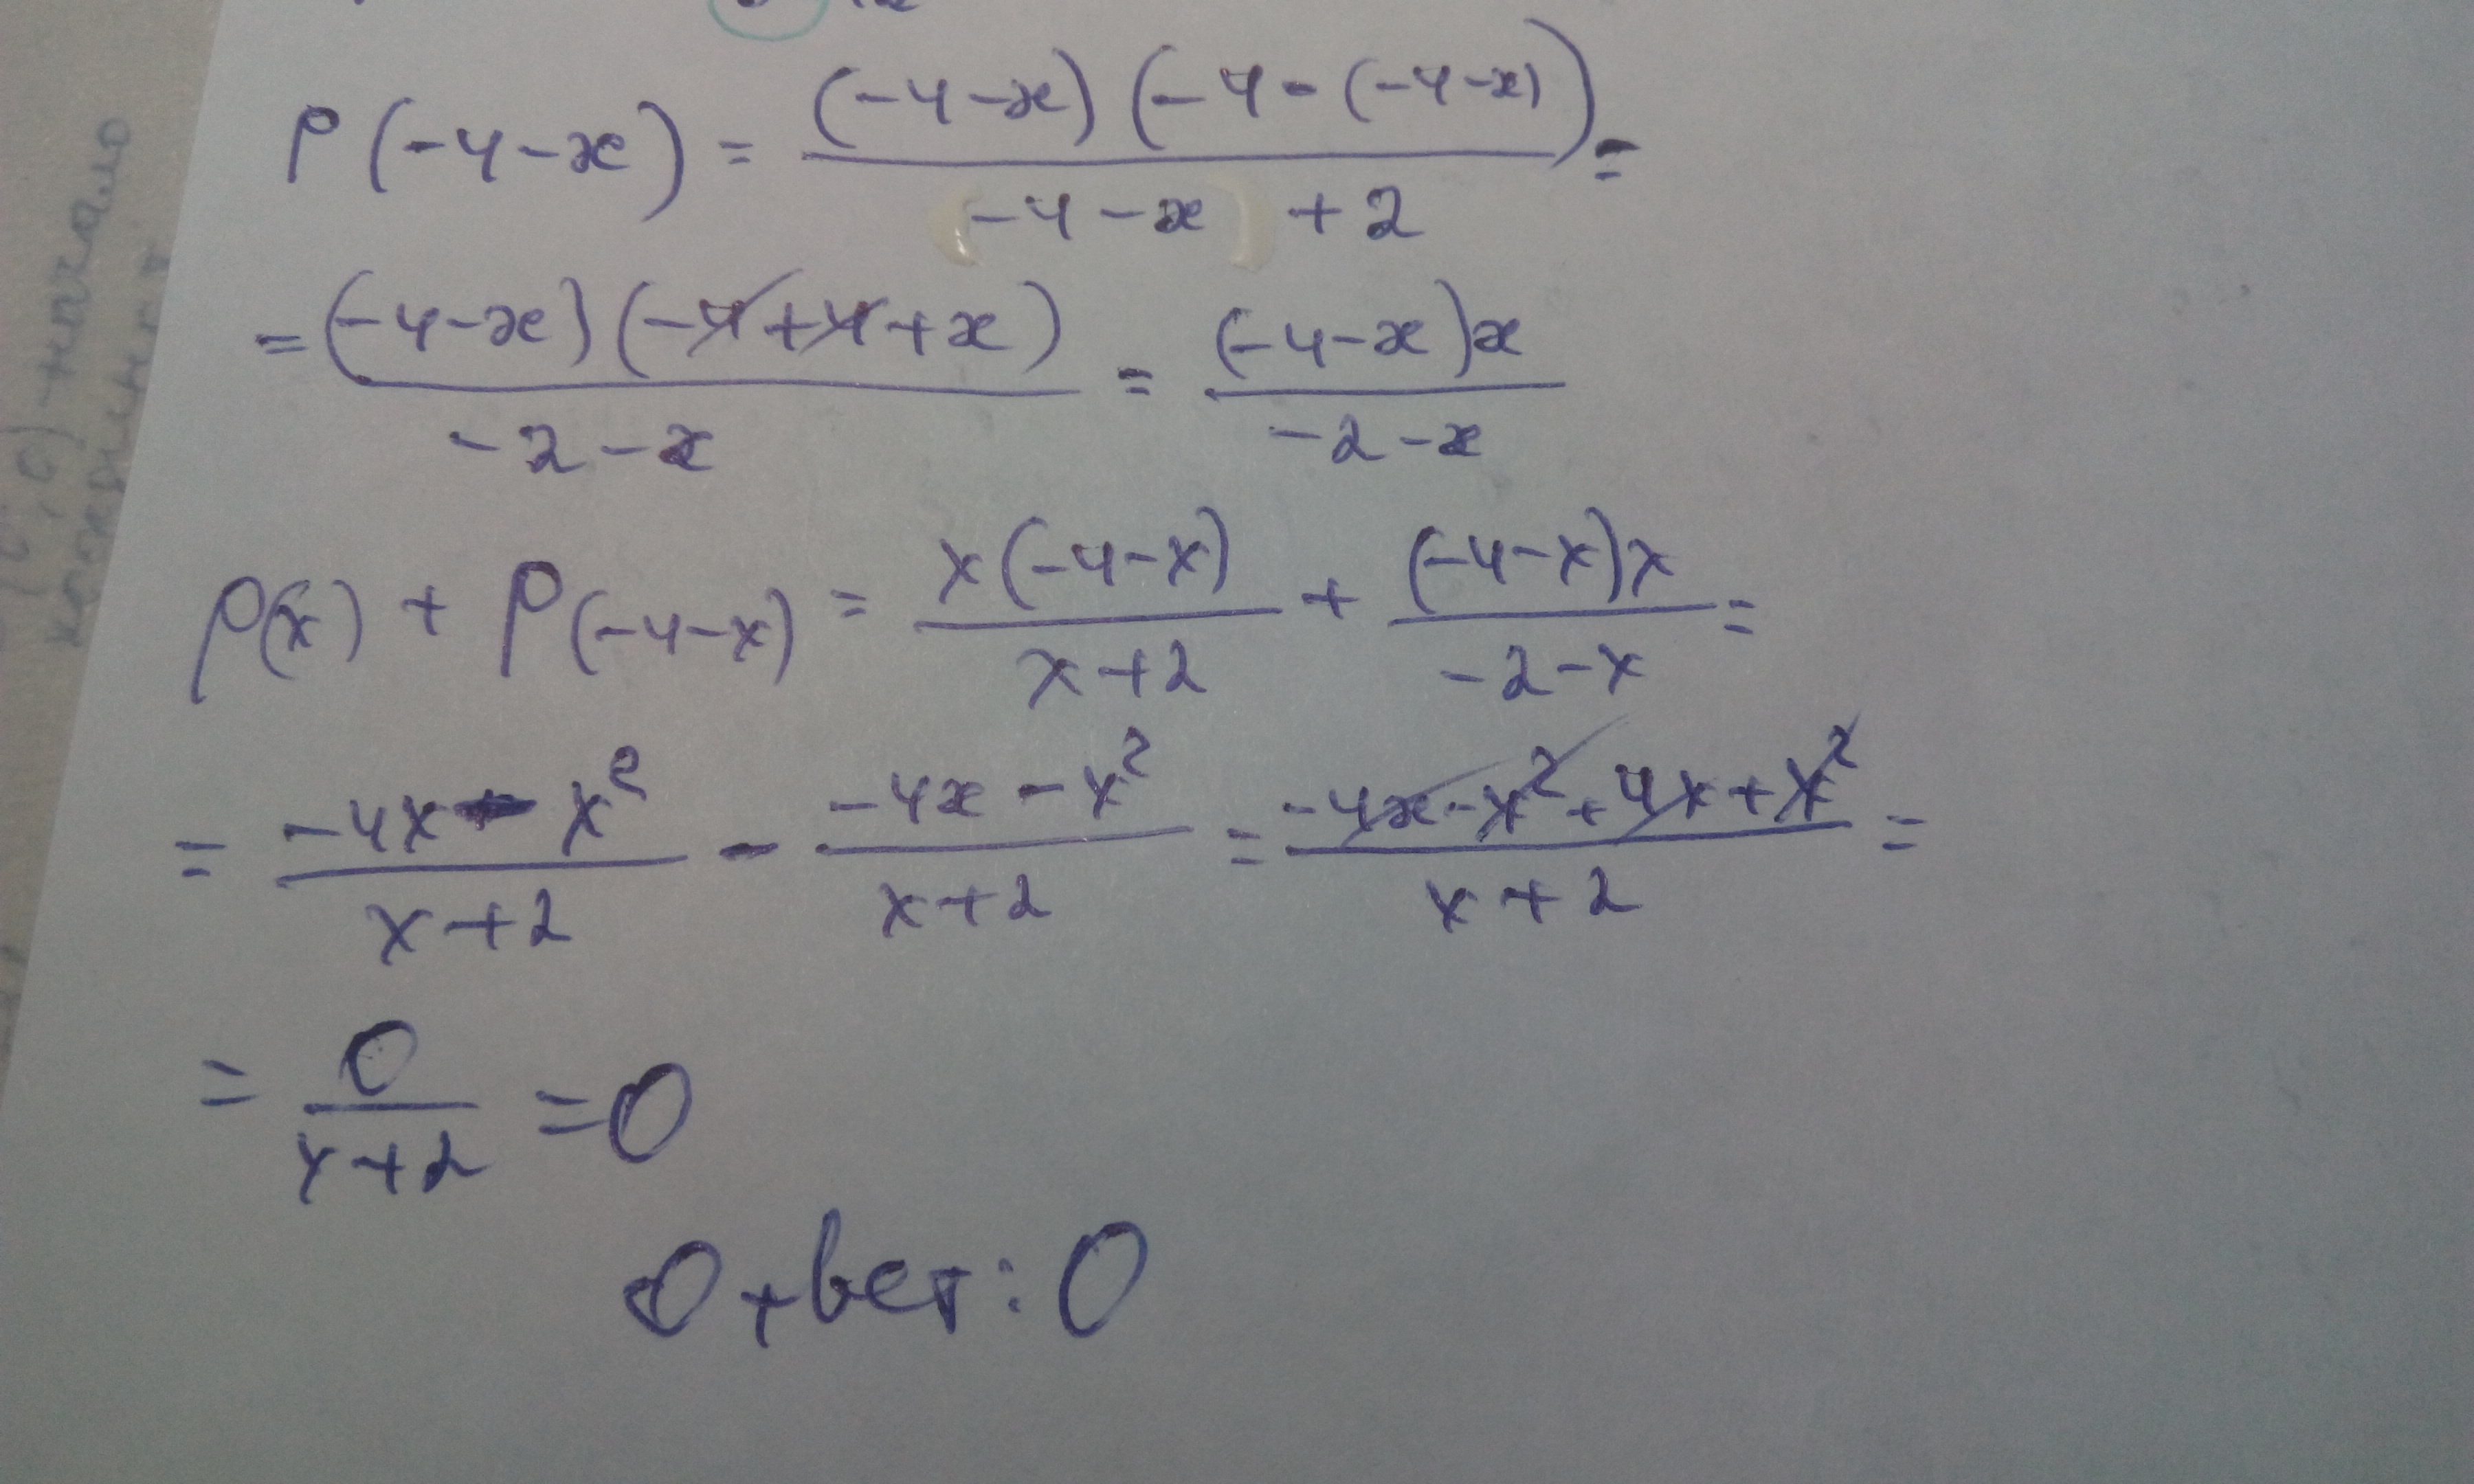 p(-4-x) = \frac{(-4-x)(-4-(-4-x))}{-4-x+2} =
= \frac{(-4-x)(-4+4+x)}{-2-x} = \frac{(-4-x)x}{-2-x}
p(x) + p(-4-x) = \frac{x(-4-x)}{x+2} + \frac{(-4-x)x}{-2-x} =
= \frac{-4x-x^2}{x+2} - \frac{-4x-x^2}{x+2} = \frac{-4x-x^2+4x+x^2}{x+2} =
= \frac{0}{x+2} = 0
Ответ: 0